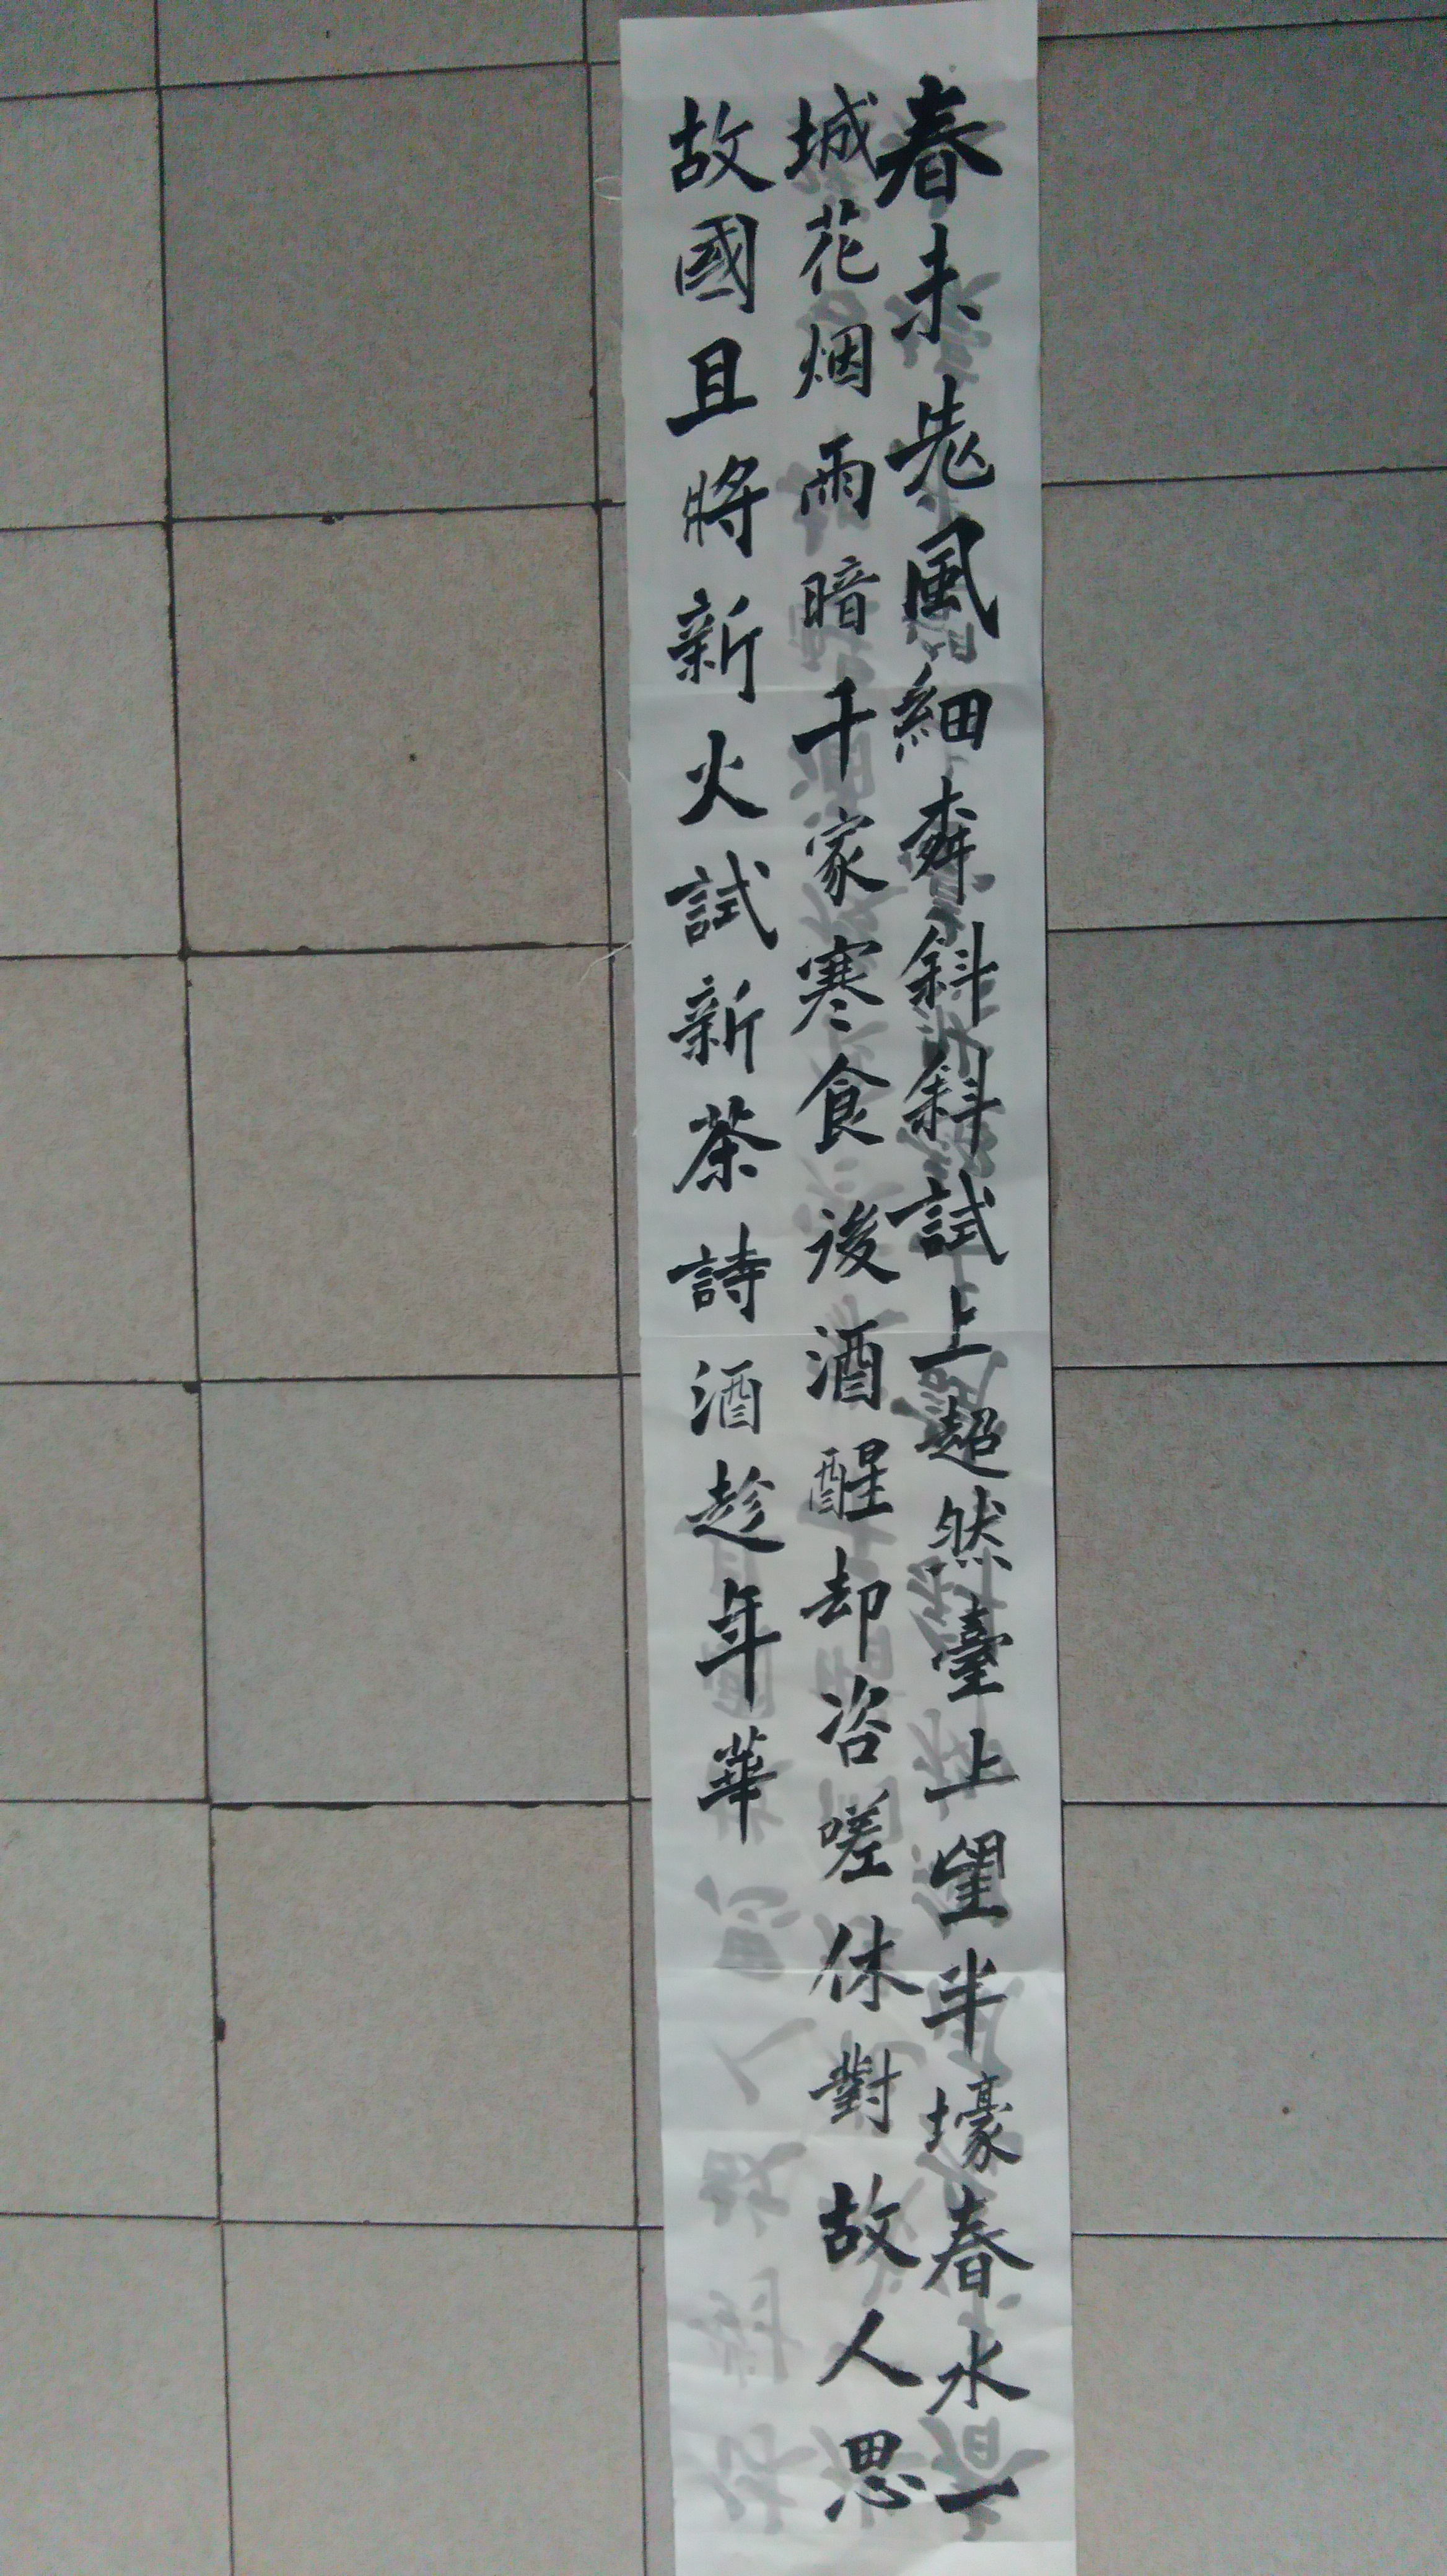 春未老風細柳斜斜試上超然臺上望半壕春水一
城花烟雨暗千家寒食後酒醒却咨嗟休對故人思
故國且將新火試新茶詩酒趁年華